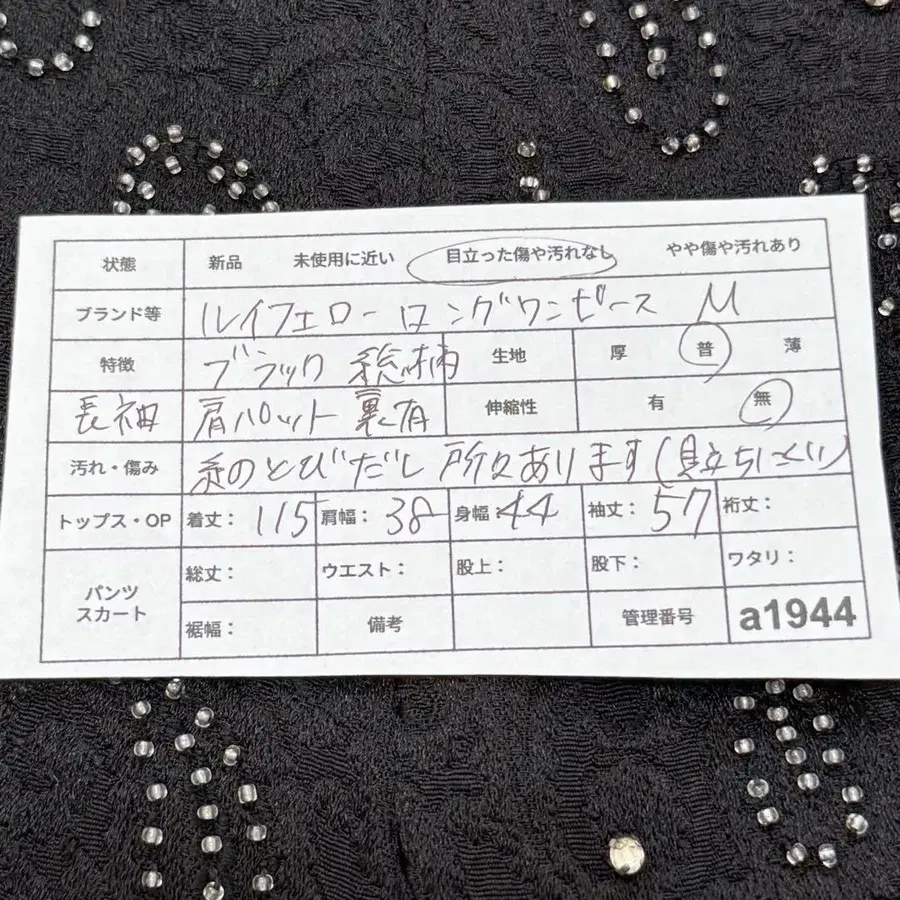 状態 新品 未使用に近い 目立った傷や汚れなし やや傷や汚れあり
ブランド等 ルイフェロー ロングワンピース M
特徴 ブラック 総柄 生地 厚 普 薄
長袖 肩パット 裏有 伸縮性 有 無
汚れ・傷み 糸のとびだし 所々あります(目立ちにくい)
トップス・OP 着丈: 115 肩幅: 38 身幅: 44 袖丈: 57 裄丈:
パンツ スカート 総丈: ウエスト: 股上: 股下: ワタリ:
裾幅: 備考 管理番号 a1944